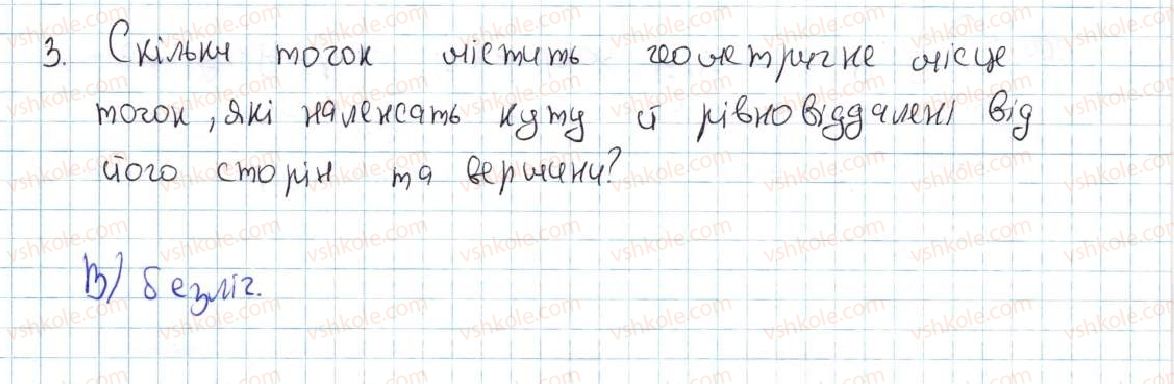 3. Скільки точок містить геометричне місце
точок, які належать куту й рівновіддалені від
його сторін та вершини?
В) безліч.